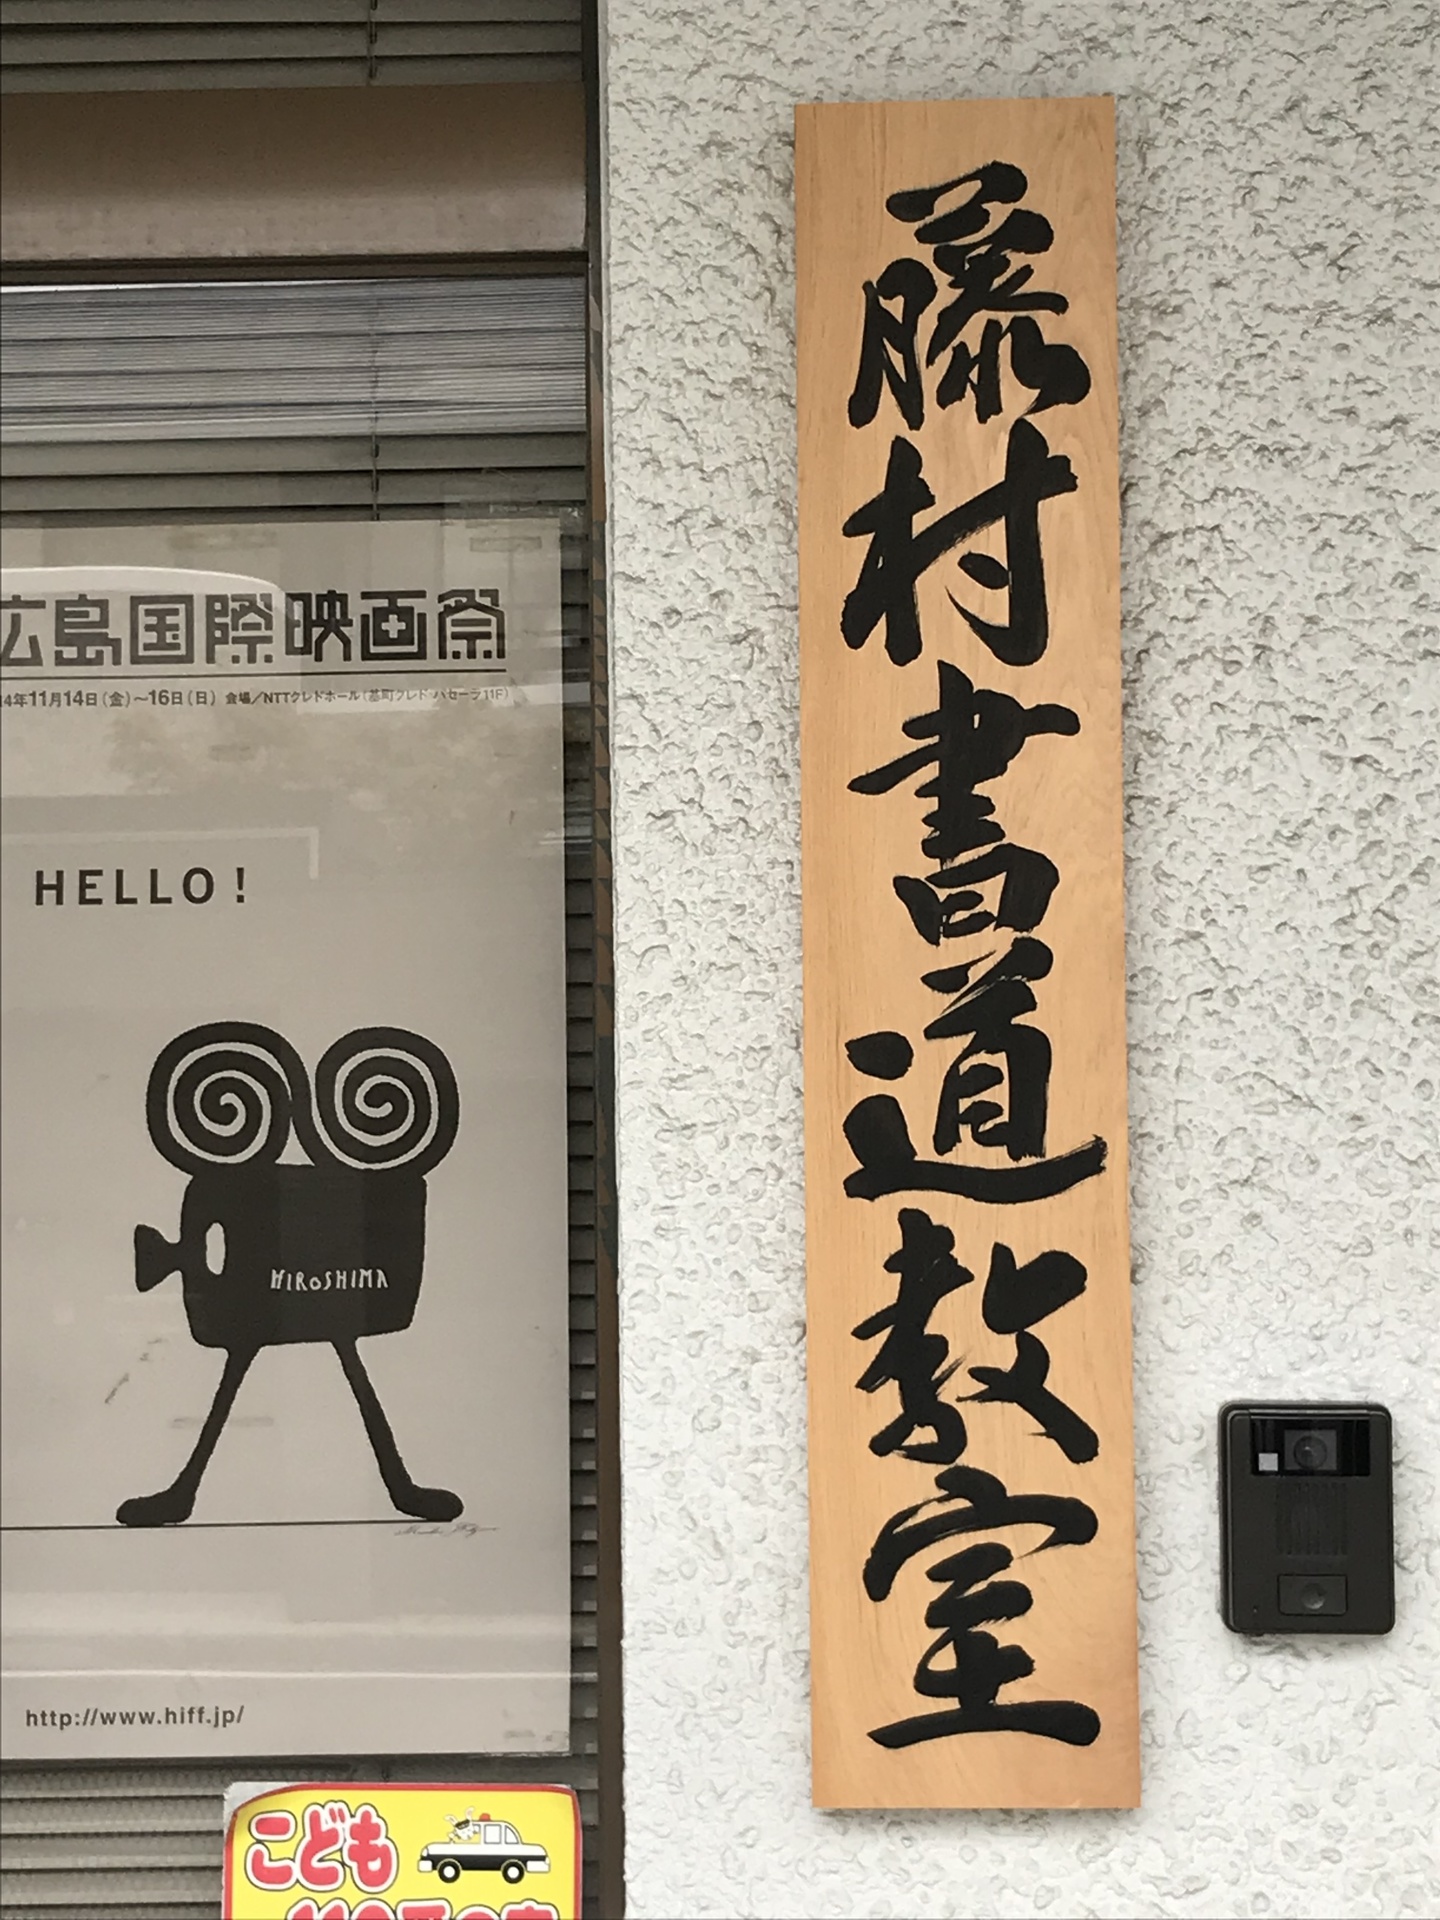 広島国際映画祭
14年11月14日(金)~16日(日) 会場/NTTクレドホール(基町クレド・パセーラ11F)
HELLO!
HIROSHIMA
http://www.hiff.jp/
こども
110番の家
藤村書道教室